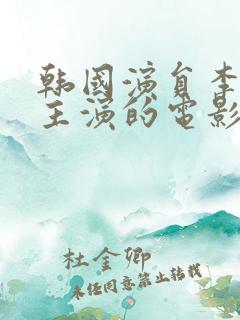 韩国演员李
主演的电影
杜金卿
未经同意禁止转载